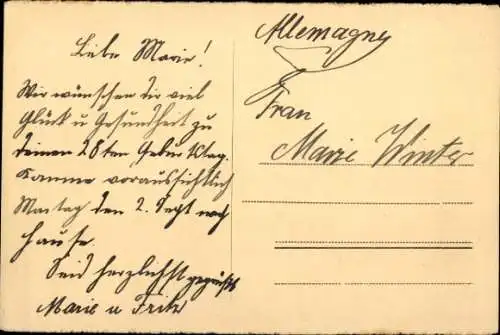 Liebe Marie!
Wir wünschen dir viel
Glück u Gesundheit zu
deinen 28ten Geburtstag.
Komme voraussichtlich
Montag den 2. Sept nach
Hause.
Seid herzlichst gegrüßt
Marie u Fritz
Allemagne
Frau
Marie Winter